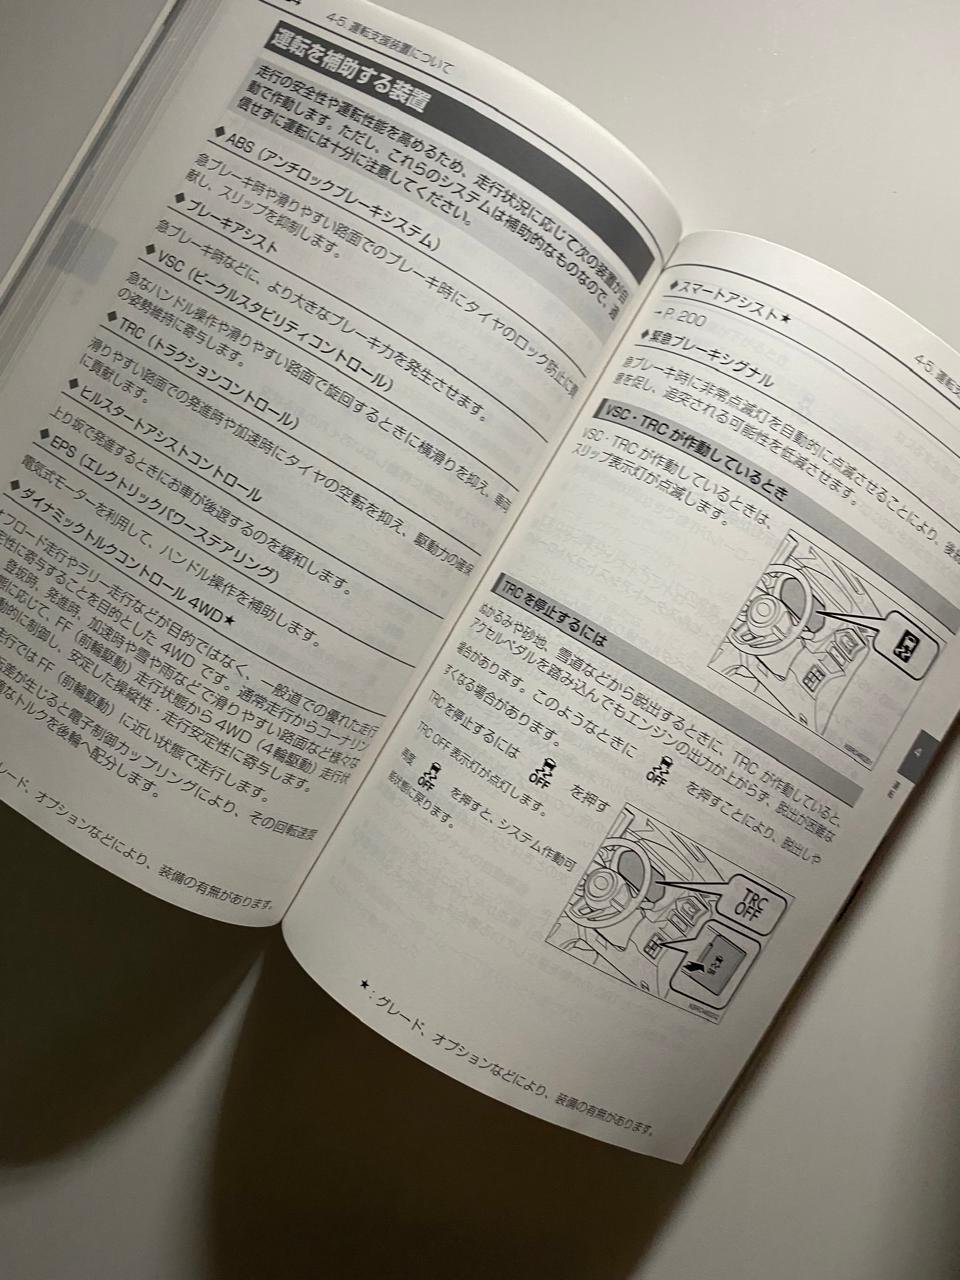 4-5. 運転支援装置について
運転を補助する装置
走行の安全性や運転性能を高めるため、走行状況に応じて次の装置が自
動で作動します。ただし、これらのシステムは補助的なものなので、過
信せずに運転には十分に注意してください。
◆ABS（アンチロックブレーキシステム）
急ブレーキ時や滑りやすい路面でのブレーキ時にタイヤのロック防止に貢
献し、スリップを抑制します。
◆ブレーキアシスト
急ブレーキ時などに、より大きなブレーキ力を発生させます。
◆VSC（ビークルスタビリティコントロール）
急なハンドル操作や滑りやすい路面で旋回するときに横滑りを抑え、車両
の姿勢維持に寄与します。
◆TRC（トラクションコントロール）
滑りやすい路面での発進時や加速時にタイヤの空転を抑え、駆動力の確保
に貢献します。
◆ヒルスタートアシストコントロール
上り坂で発進するときにお車が後退するのを緩和します。
◆EPS（エレクトリックパワーステアリング）
電気式モーターを利用して、ハンドル操作を補助します。
◆ダイナミックトルクコントロール 4WD★
オフロード走行やラリー走行などが目的ではなく、一般道での優れた走行
定性に寄与することを目的とした 4WD です。通常走行からコーナリン
登坂時、発進時、加速時や雪や雨などで滑りやすい路面など様々な
に応じて、FF（前輪駆動）走行状態から 4WD（4輪駆動）走行状
動的に制御し、安定した操縦性・走行安定性に寄与します。
走行では FF（前輪駆動）に近い状態で走行します。
差が生じると電子制御カップリングにより、その回転速度
なトルクを後輪へ配分します。
レード、オプションなどにより、装備の有無があります。
4-5. 運転
◆スマートアシスト★
→P. 200
◆緊急ブレーキシグナル
急ブレーキ時に非常点滅灯を自動的に点滅させることにより、後続
意を促し、追突される可能性を低減させます。
VSC・TRC が作動しているとき
VSC・TRC が作動しているときは、
スリップ表示灯が点滅します。
TRC を停止するには
ぬかるみや砂地、雪道などから脱出するときに、TRC が作動していると、
アクセルペダルを踏み込んでもエンジンの出力が上がらず、脱出が困難な
場合があります。このようなときに OFF を押すことにより、脱出しや
すくなる場合があります。
TRC を停止するには OFF を押す
TRC OFF 表示灯が点灯します。
再度 OFF を押すと、システム作動可
能状態に戻ります。
TRC
OFF
4
運転
★：グレード、オプションなどにより、装備の有無があります。